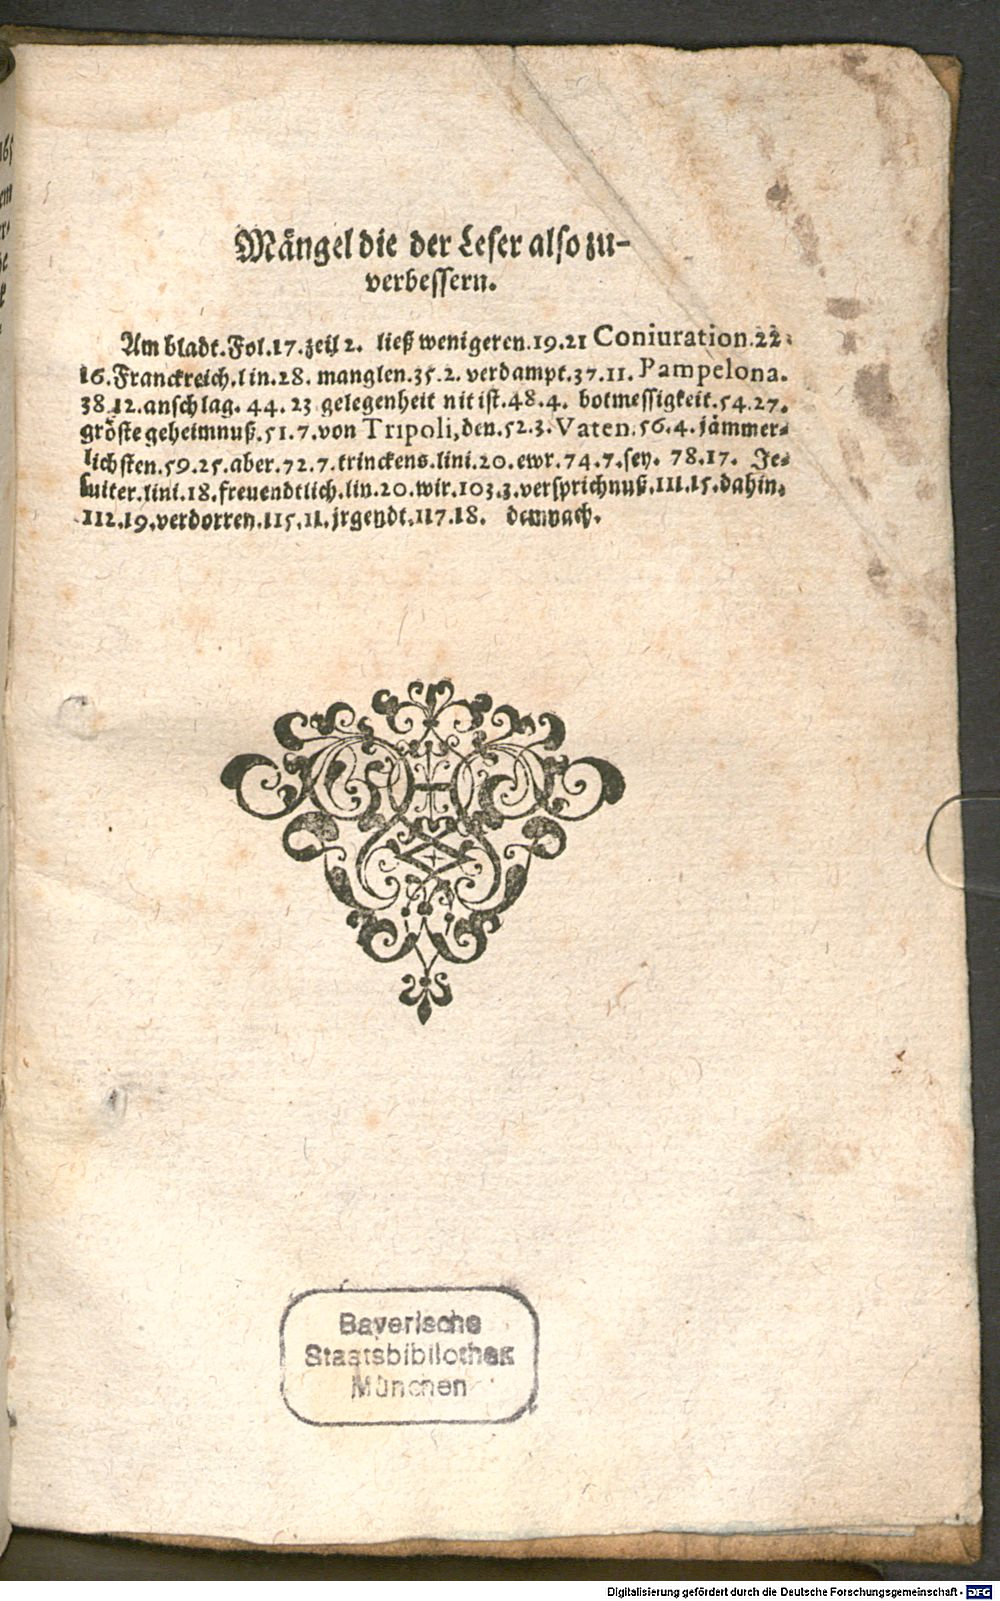 Mångel die der Leser also zu-
verbessern.
Am bladt. Fol. 17. zeil 2. ließ wenigeren. 19. 21 Coniuration. 22.
16. Franckreich. lin. 28. manglen. 35. 2. verdampt. 37. 11. Pampelona.
38 12. anschlag. 44. 23 gelegenheit nit ist. 48. 4. botmessigkeit. 54. 27.
grôste geheimnuß. 51. 7. von Tripoli, den. 52. 3. Vaten. 56. 4. jåmmer-
lichsten. 59. 25. aber. 72. 7. trinckens. lini. 20. ewr. 74. 7. sey. 78. 17. Je-
suiter. lini. 18. freuendtlich. lin. 20. wir. 103. 3. versprichnuß. 111. 15. dahin.
112. 19. verdorren. 115. 11. jrgendt. 117. 18. demnach.
Bayerische
Staatsbibliothek
München
Digitalisierung gefördert durch die Deutsche Forschungsgemeinschaft - DFG